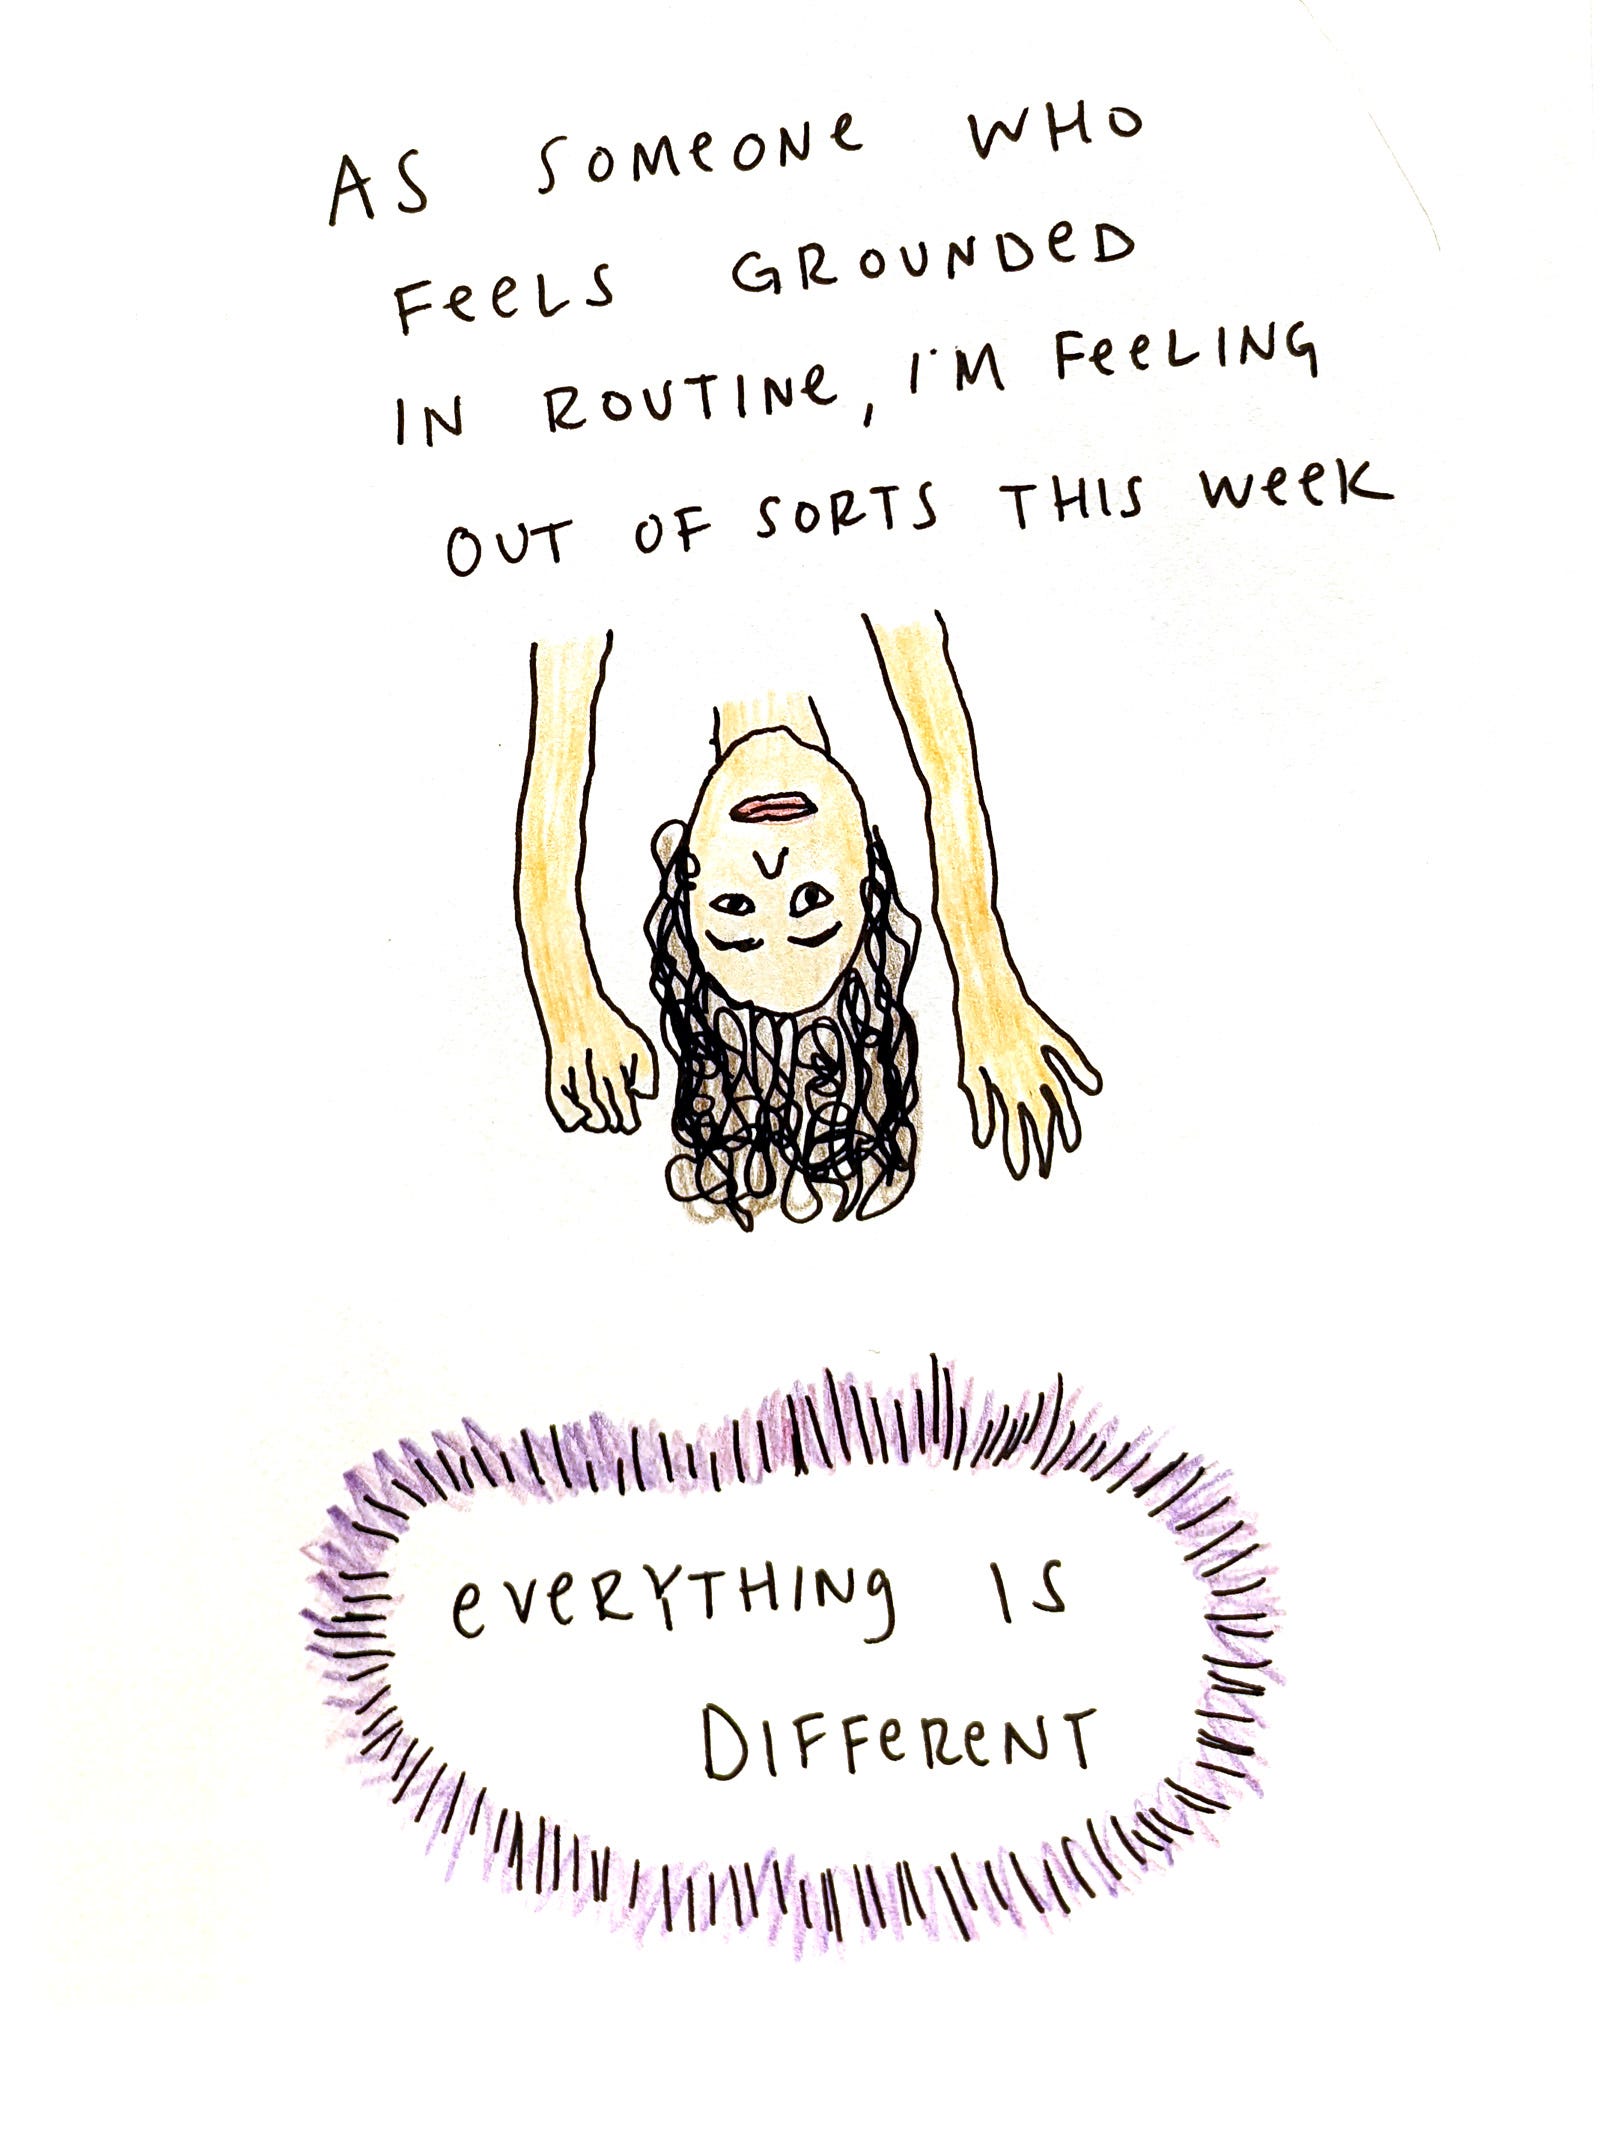 AS SOMeONe WHO
FeeLS GROUNDeD
IN ROUTINe, I'M FeeLING
OUT OF SORTS THIS weeK
eveRYTHINg IS
DIFFeReNT